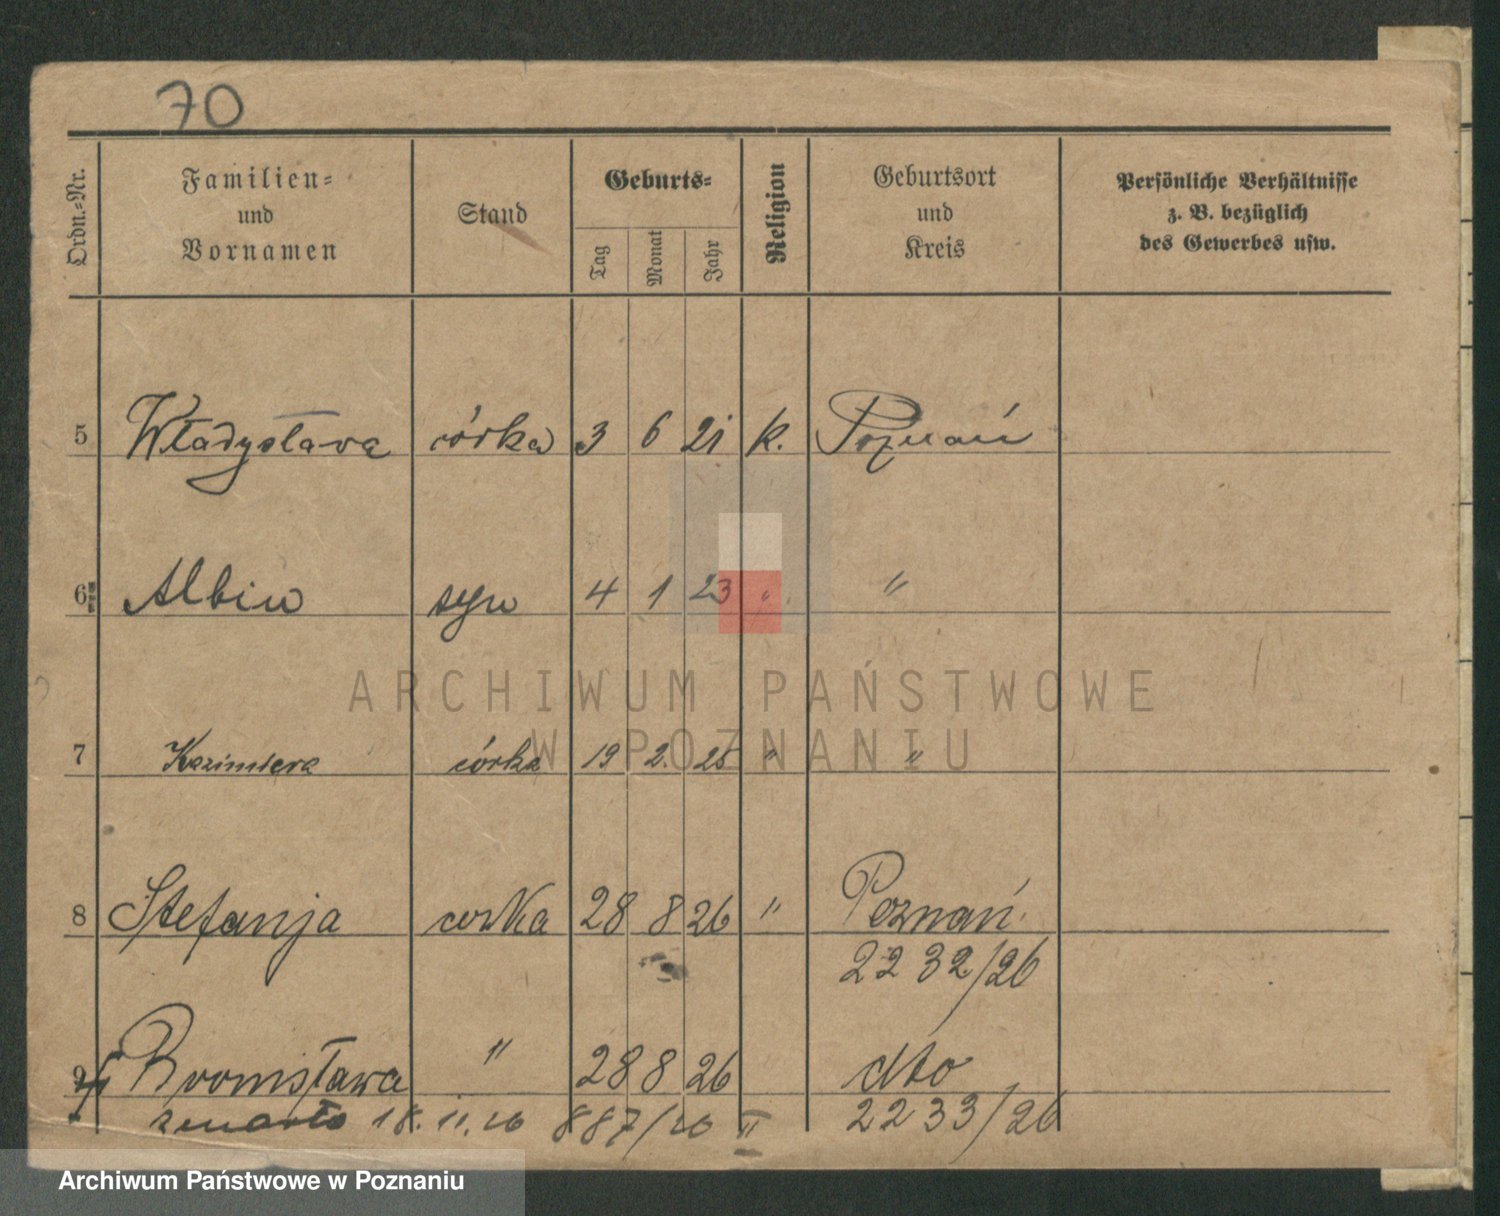 70
Ordn.-Nr.
Familien- und Vornamen
Stand
Geburts-
Tag Monat Jahr
Religion
Geburtsort und Kreis
Persönliche Verhältnisse z. B. bezüglich des Gewerbes usw.
5 Władysława córka 3 6 21 k. Poznań
6 Albin syn 4 1 23 " "
ARCHIWUM PAŃSTWOWE
W POZNANIU
7 Kazimiera córka 19 2. 25 " "
8 Stefanja corka 28 8 26 " Poznań
2232/26
9 Bronisława " 28 8 26 dto
zmarła 18.11.26 887/26 II 2233/26
Archiwum Państwowe w Poznaniu